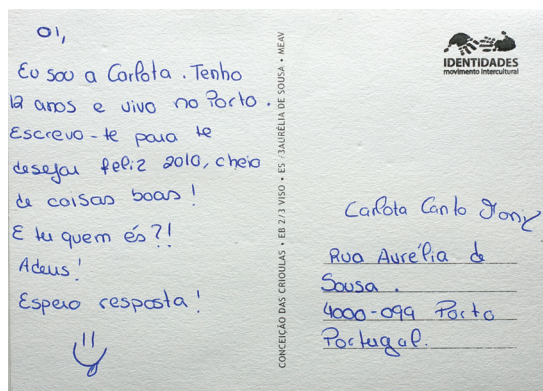 OI,
Eu sou a Carlota. Tenho
12 anos e vivo no Porto.
Escrevo-te para te
desejar feliz 2010, cheio
de coisas boas!
E tu quem és?!
Adeus!
Espero resposta!
CONCEIÇÃO DAS CRIOULAS • EB 2/3 VISO • ES /3AURÉLIA DE SOUSA • MEAV
IDENTIDADES
movimento intercultural
Carlota Canto
Rua Aurélia de
Sousa.
4000-099 Porto
Portugal.